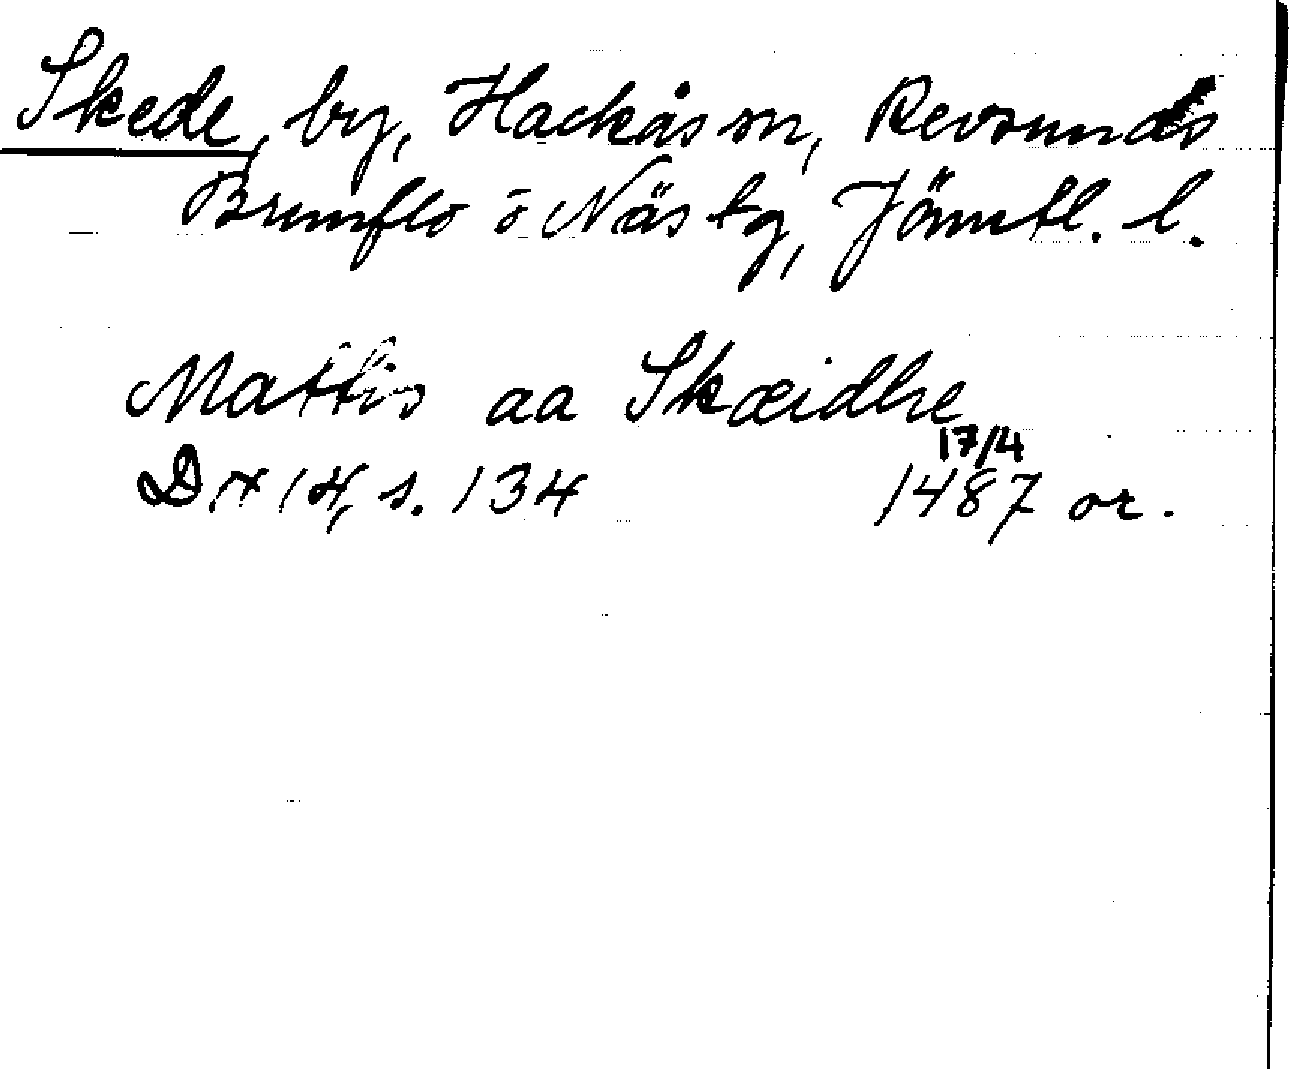 Skede, by, Hackås sn, Revsunds
Brunflo o Näs tg, Jämtl. l.
Mattis aa Skæidhe
17/4
DN 14, s. 134 1487 or.